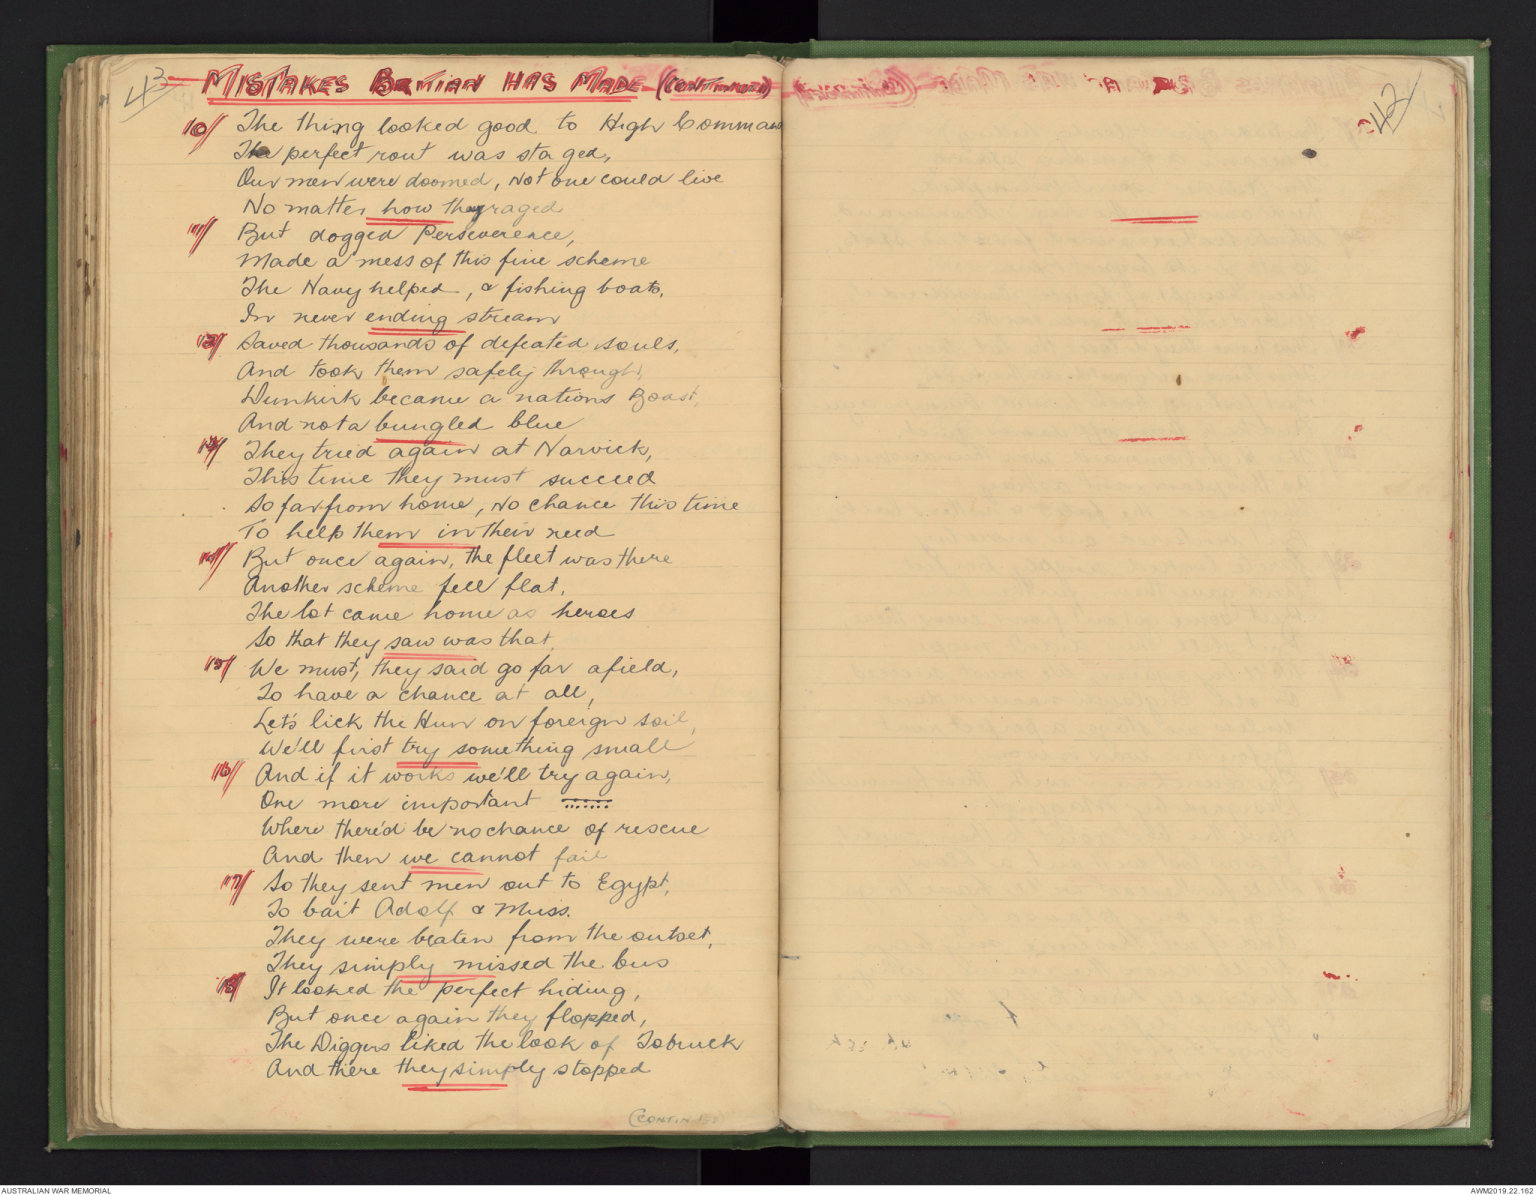 43
MISTAKES BRITIAN HAS MADE (CONTINUED)
10/ The thing looked good to High Command
The perfect rout was staged,
Our men were doomed, not one could live
No matter how they raged
11/ But dogged Perseverence,
Made a mess of this fine scheme
The Navy helped, & fishing boats,
In never ending stream
12/ Saved thousands of defeated souls,
And took them safely through,
Dunkirk became a nations Boast,
And not a bungled blue
13/ They tried again at Narvick,
This time they must succeed
So far from home, no chance this time
To help them in their need
14/ But once again, the fleet was there
Another scheme fell flat,
The lot came home as heroes
So that they saw was that
15/ We must, they said go far afield,
To have a chance at all,
Let's lick the Hun on foreign soil,
We'll first try something small
16/ And if it works we'll try again,
One more important .......
Where there'd be no chance of rescue
And then we cannot fail
17/ So they sent men out to Egypt,
To bait Adolf & Muss.
They were beaten from the outset,
They simply missed the bus
18/ It looked the perfect hiding,
But once again they flopped,
The Diggers liked the look of Tobruck
And there they simply stopped
(CONTINUED)
42
AUSTRALIAN WAR MEMORIAL
AWM2019.22.162